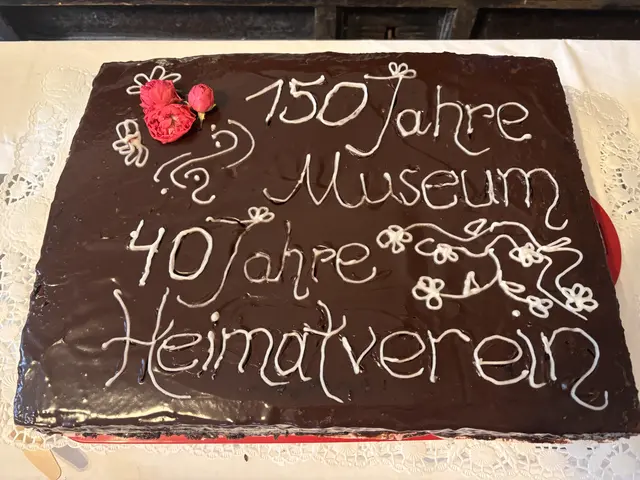 150 Jahre
Museum
40 Jahre
Heimatverein